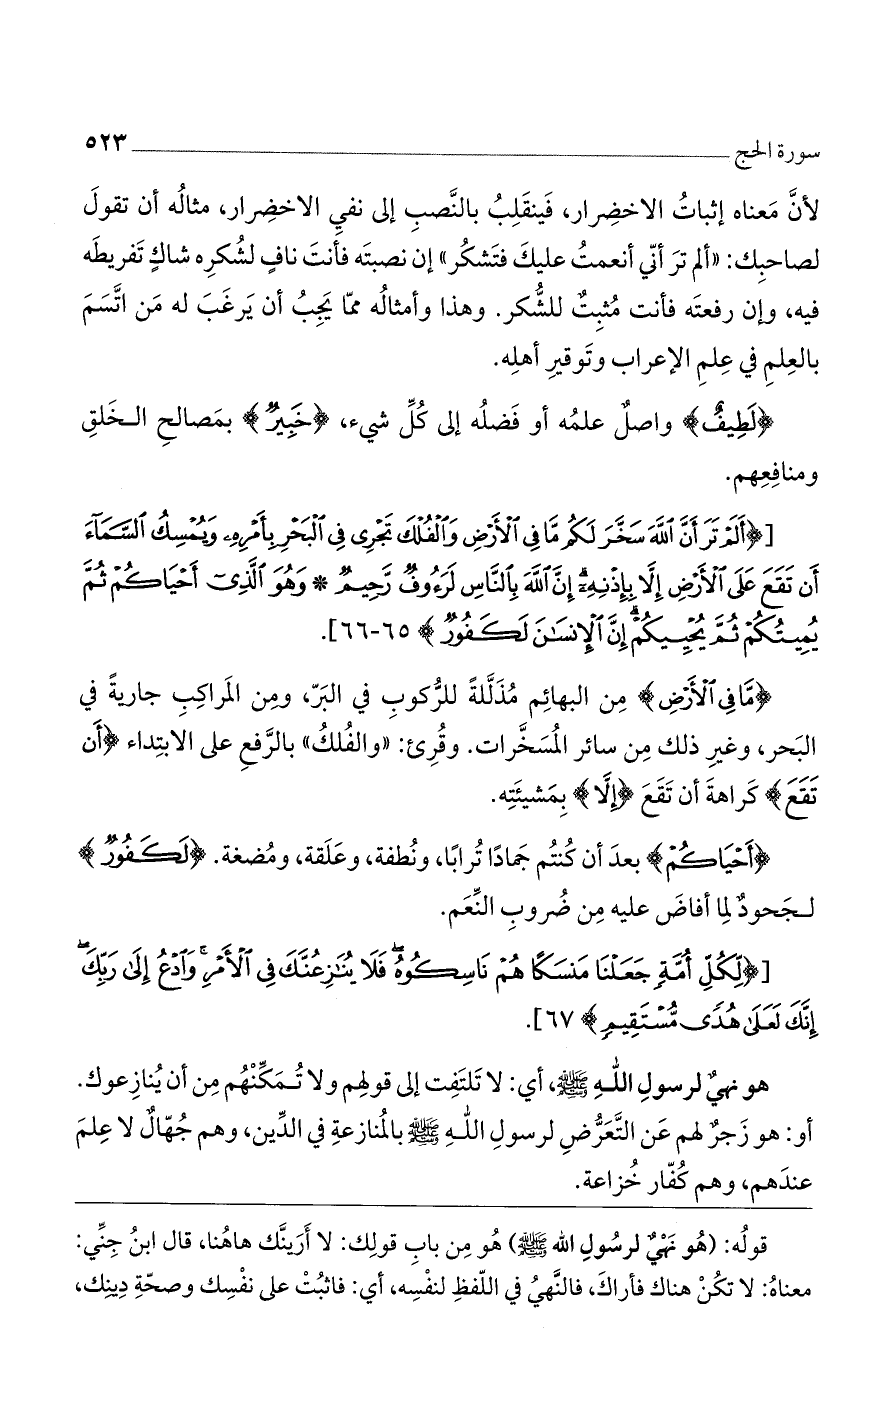 سورة الحج ٥٢٣
لأنَّ مَعناه إثباتُ الاخضِرار، فَينقَلِبُ بالنَّصبِ إلى نفيِ الاخضِرار، مثالُه أن تقولَ
لصاحبِك: «ألم ترَ أنّي أنعمتُ عليكَ فتَشكُر» إن نصبتَه فأنتَ نافٍ لشُكرِه شاكٍ تَفريطَه
فيه، وإن رفعتَه فأنت مُثبِتٌ للشُّكر. وهذا وأمثالُه ممّا يَجِبُ أن يَرغَبَ له مَن اتَّسَمَ
بالعِلمِ في عِلمِ الإعراب وتَوقيرِ أهلِه.
﴿لَطِيفٌ﴾ واصلٌ علمُه أو فَضلُه إلى كُلِّ شيء، ﴿خَبِيرٌ﴾ بمَصالحِ الخَلقِ
ومنافِعِهم.
[﴿أَلَمْ تَرَ أَنَّ ٱللَّهَ سَخَّرَ لَكُم مَّا فِي ٱلْأَرْضِ وَٱلْفُلْكَ تَجْرِي فِي ٱلْبَحْرِ بِأَمْرِهِۦ وَيُمْسِكُ ٱلسَّمَآءَ
أَن تَقَعَ عَلَى ٱلْأَرْضِ إِلَّا بِإِذْنِهِۦٓ إِنَّ ٱللَّهَ بِٱلنَّاسِ لَرَءُوفٌ رَّحِيمٌ * وَهُوَ ٱلَّذِيٓ أَحْيَاكُمْ ثُمَّ
يُمِيتُكُمْ ثُمَّ يُحْيِيكُمْ إِنَّ ٱلْإِنسَٰنَ لَكَفُورٌ﴾ ٦٥-٦٦].
﴿مَّا فِي ٱلْأَرْضِ﴾ مِن البهائِم مُذَلَّلةً للرُّكوبِ في البَرّ، ومِن المَراكِبِ جاريةً في
البَحر، وغيرِ ذلك مِن سائر المُسَخَّرات. وقُرِئ: «والفُلكُ» بالرَّفعِ على الابتداء ﴿أَن
تَقَعَ﴾ كَراهةَ أن تَقَعَ ﴿إِلَّا﴾ بِمَشيئَتِه.
﴿أَحْيَاكُمْ﴾ بعدَ أن كُنتُم جَمادًا تُرابًا، ونُطفة، وعَلَقة، ومُضغة. ﴿لَكَفُورٌ﴾
لجَحودٌ لِما أفاضَ عليه مِن ضُروبِ النِّعَم.
[﴿لِّكُلِّ أُمَّةٍ جَعَلْنَا مَنسَكًا هُمْ نَاسِكُوهُ فَلَا يُنَٰزِعُنَّكَ فِي ٱلْأَمْرِ وَٱدْعُ إِلَىٰ رَبِّكَ
إِنَّكَ لَعَلَىٰ هُدًى مُّسْتَقِيمٍ﴾ ٦٧].
هو نهيٌ لرسولِ اللهِ ﷺ، أي: لا تَلتَفِت إلى قولِهم ولا تُمَكِّنْهُم مِن أن يُنازِعوك.
أو: هو زَجرٌ لهم عَن التَّعَرُّضِ لرسولِ اللهِ ﷺ بالمُنازعةِ في الدِّين، وهم جُهّالٌ لا عِلمَ
عندَهم، وهم كُفّار خُزاعة.
قولُه: (هُو نَهْيٌ لرسُولِ الله ﷺ) هُو مِن بابِ قولِك: لا أَرَينَّك هاهُنا، قال ابنُ جِنِّي:
معناهُ: لا تكُنْ هناك فأراكَ، فالنَّهيُ في اللّفظِ لنفْسِه، أي: فاثبُتْ على نفْسِك وصحّةِ دِينِك،